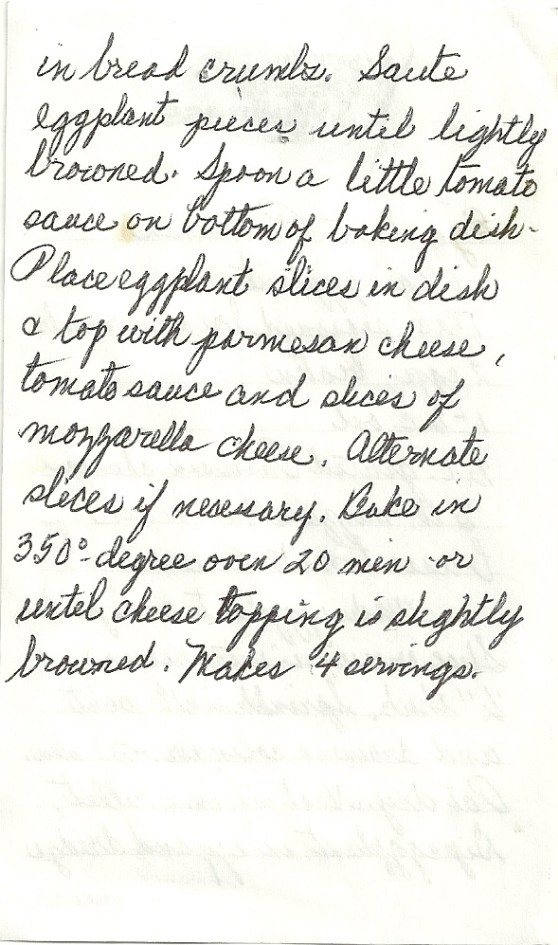 in bread crumbs. Saute
eggplant pieces until lightly
browned. Spoon a little tomato
sauce on bottom of baking dish.
Place eggplant slices in dish
& top with parmesan cheese,
tomato sauce and slices of
mozzarella cheese. Alternate
slices if necessary. Bake in
350°-degree oven 20 min or
until cheese topping is slightly
browned. Makes 4 servings.